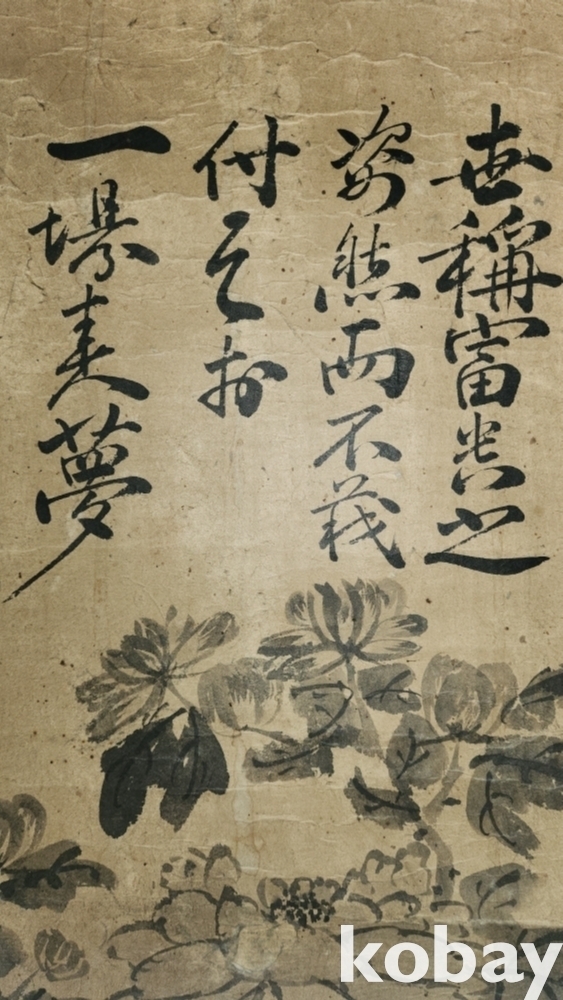 世稱富貴之
姿然而不義
付之於
一場春夢
kobay